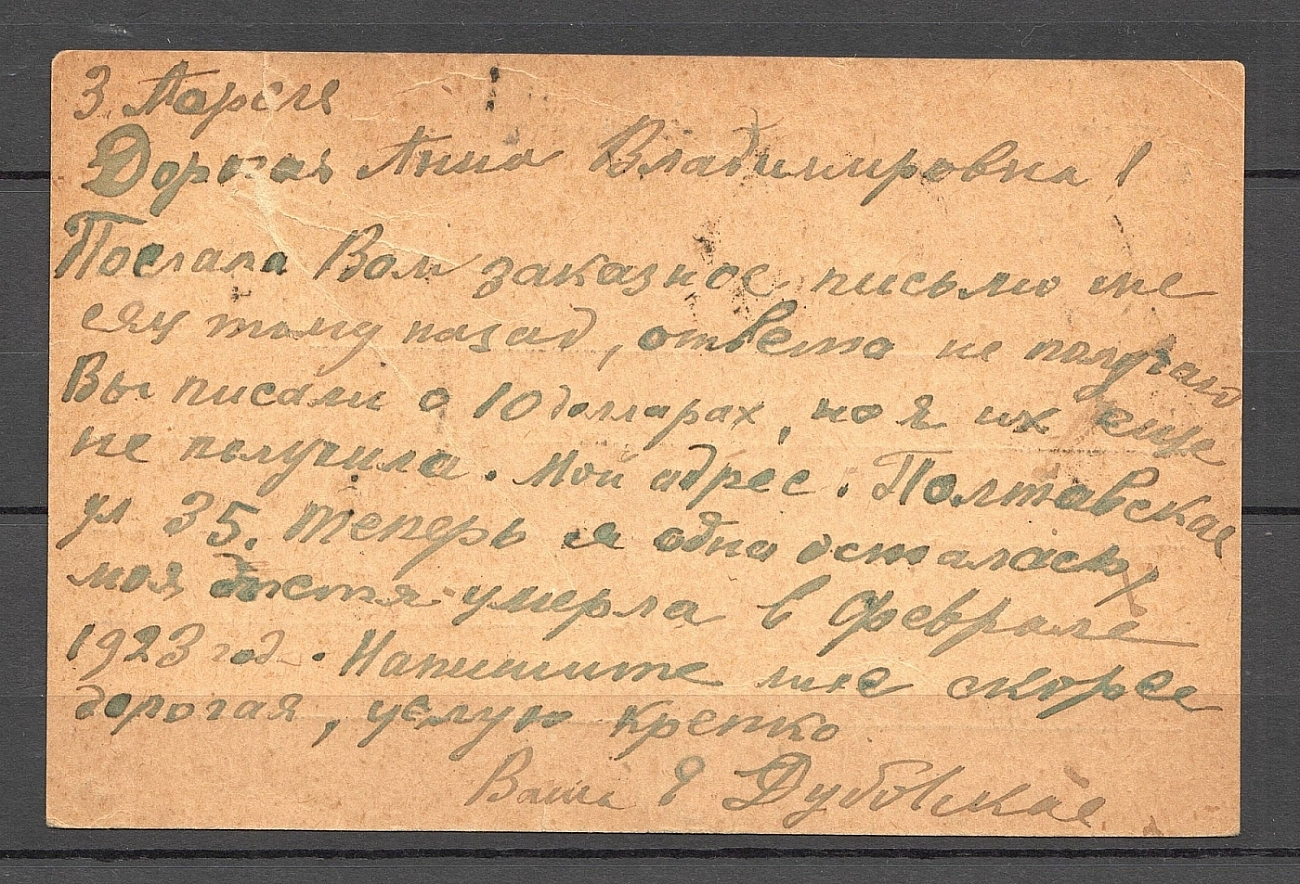 3 Апреля
Дорогая Анна Владимировна!
Послала Вам заказное письмо ме
сяц тому назад, ответа не получаю
Вы писали о 10 долларах, но я их еще
не получила. Мой адрес. Полтавская
ул 35. Теперь я одна осталась,
моя умерла в феврале
1923 год. Напишите мне скорее
дорогая, целую крепко
Ваша Дубовская